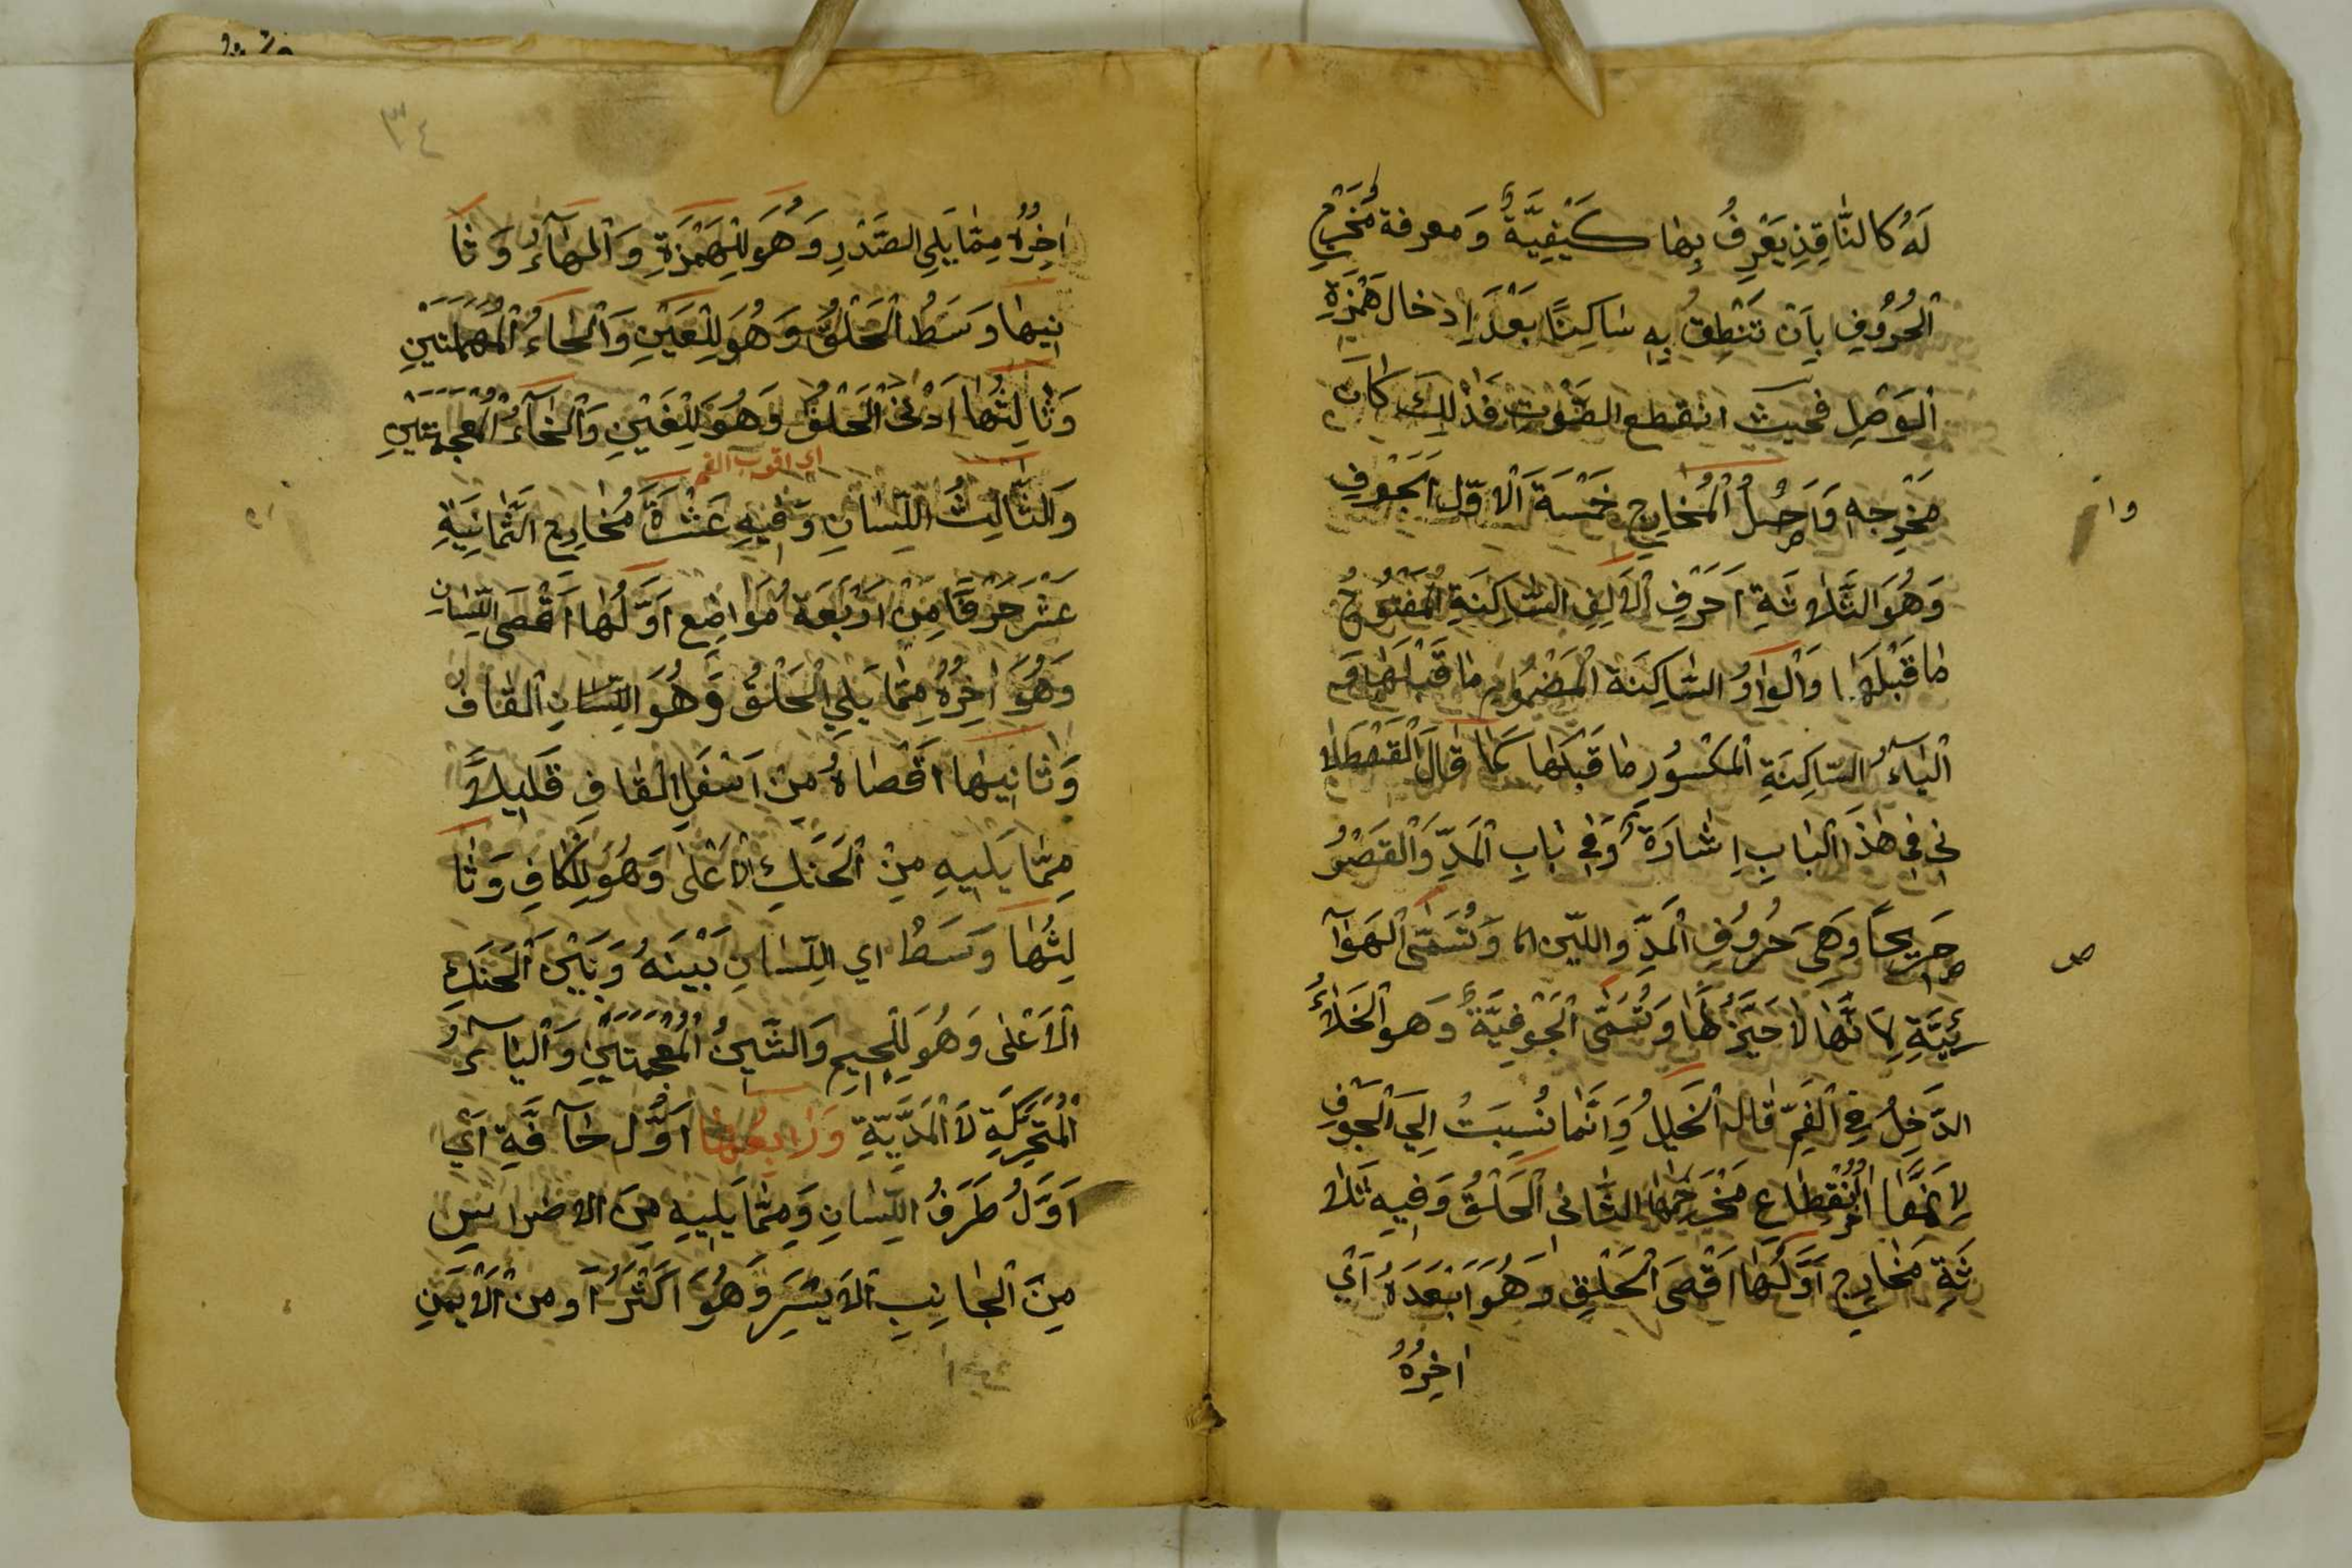 لَهُ كَالنَّاقِذِ يَعْرِفُ بِهَا كَيْفِيَّةُ وَمعرفة مُخْرَجِ
الْحُرُوْفِ بِاَنْ تَنْطِقُ بِهِ سَاكِنًا بَعْدَ اِدْخال هَمْزَةِ
الْوَصْلِ فحيث انقطع الصَّوْتِ فَذٰلِكَ كَانَ
مَخْرجه وَاَصْلُ الْمُخَارِجِ خَمْسَةَ اَلْاوّل الجَوْفِ
وَهُوَ الثَّلَاثَةِ اَحَرْفِ اَلْاَلِفِ السَّاكِنَةِ الْمَفْتُوْحُ
مَا قَبْلَهَا وَالْوَاوُ السَّاكِنَة الْمَضْمُوْمِ مَا قَبْلَهَا وَ
اْليَآءُ السَّاكِنَةِ الْمَكْسُوْرِ مَا قَبْلَهَا كَمَا قَالَ الْقَسْطَلا
نِي فِي هٰذَا الْبَابِ اِشَارَةً وَفِي بَابِ الْمَدِّ وَالْقَصْرُ
صَرِيْحًا وَهِيَ حُرُوْفِ الْمَدِّ واللّين وَتُسَمَّى الْهَوَآ
ئِيَّةِ لِاَنَّهَا لَا حَيَّزُ لَهَا وَتُسَمَّى الْجَوْفِيَّةُ وَهو الْخَلَاءُ
الدَّخِلُ فِي الْفَمِّ قاله الْخَلِيْلُ وَاِنَّمَا نُسِبَتْ اِلَى الْجَوْفِ
لِاَنَّهَا اٰخِرُ انْقِطَاعِ مَخْرَجِهَا الثَّانى الْحَلْقُ وَفِيْهِ ثَلَا
ثَةِ مَخَارِجِ اَوَّلُهَا اَقْصَى الْحَلْقِ وَهُوَ اَبْعَدَهُ اَيْ
اٰخِرُهُ
وا
ص
٣٤
اٰخِرُهُ مِمَّا يَلِي الصَّدْرِ وَهُوَ لِلْهَمْزَةِ وَالْهَآءُ وَثَا
نِيهَا وَسَطُ الْحَلْقُ وَهُوَ لِلْعَيْنِ وَالْحَاءُ الْمُهْمَلَتَيْنِ
وَثَالِثُهَا اَدْنَى الْحَلْقُ وَهُوَ لِلْغَيْنِ وَالْخَآءُ الْمُعْجَمَتَيْنِ
اي اقرب الفم
وَالثَّالِثُ اللِّسَانِ وَفِيْهِ عَشْرَةَ مُخَارِجِ الثَّمَانِيَةِ
عَشَرَ حَرْفًا مِنْ اَرْبَعَة مُوَاضِع اَوَّلُهَا اَقْصَى اللِّسَانِ
وَهُوَ اٰخِرُهُ مِمَّا يَلِي الْحَلْقُ وَهُوَ اللِّسَانِ الْقَافُ
وَثَانِيْهَا اَقْصَاهُ مِنْ اَسْفَلِ الْقَافِ قَلِيْلاً
مِمَّا يَلِيْهِ مِنْ اَلْحَنَكِ الْاَعْلٰى وَهُوَ لِلْكَافِ وَثَا
لِثُهَا وَسَطُ اي اللِّسَانِ بَيْنَهُ وَبَيْنَ اَلْحَنَكِ
الْاَعْلٰى وَهُوَ لِلْجِيْمِ وَالشِّيْنُ الْمُعْجَمَتَيْنِ وَالْيَآءُ
الْمُتَحَرِّكَةِ لَا الْمَدِّيَّةِ وَرَابِعُهَا اَوَّل حَآفَّةِ اَيْ
اَوَّلُ طَرَفُ اللِّسَانِ وَمِمَّا يَلِيْهِ مِنَ الاضراسِ
مِنَ الْجَانِبِ الْاَيْسَرِ وَهُوَ اَكْثَرُ اَو من الْاَيْمَنِ